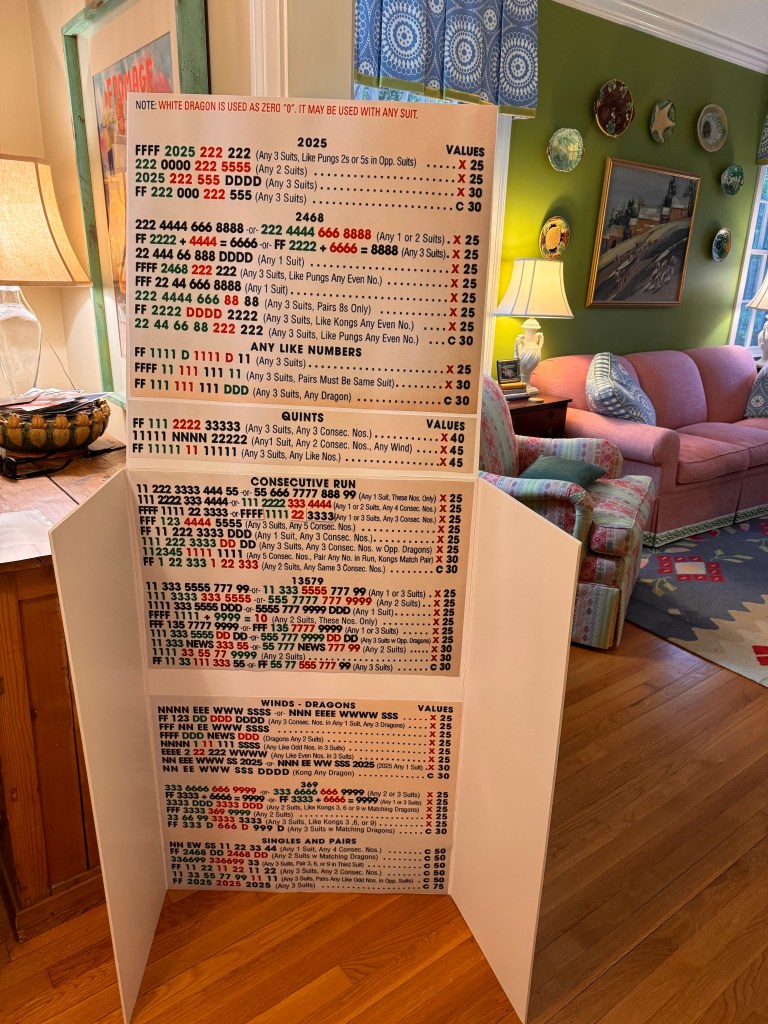 FROMAGE
NOTE: WHITE DRAGON IS USED AS ZERO "0". IT MAY BE USED WITH ANY SUIT.
2025 VALUES
FFFF 2025 222 222 (Any 3 Suits, Like Pungs 2s or 5s in Opp. Suits) ..... X 25
222 0000 222 5555 (Any 2 Suits) ..... X 25
2025 222 555 DDDD (Any 3 Suits) ..... X 30
FF 222 000 222 555 (Any 3 Suits) ..... C 30
2468
222 4444 666 8888 -or- 222 4444 666 8888 (Any 1 or 2 Suits) .. X 25
FF 2222 + 4444 = 6666 -or- FF 2222 + 6666 = 8888 (Any 3 Suits) .. X 25
22 444 66 888 DDDD (Any 1 Suit) ..... X 25
FFFF 2468 222 222 (Any 3 Suits, Like Pungs Any Even No.) ..... X 25
FFF 22 44 666 8888 (Any 1 Suit) ..... X 25
222 4444 666 88 88 (Any 3 Suits, Pairs 8s Only) ..... X 25
FF 2222 DDDD 2222 (Any 3 Suits, Like Kongs Any Even No.) ..... X 25
22 44 66 88 222 222 (Any 3 Suits, Like Pungs Any Even No.) ..... C 30
ANY LIKE NUMBERS
FF 1111 D 1111 D 11 (Any 3 Suits) ..... X 25
FFFF 11 111 111 11 (Any 3 Suits, Pairs Must Be Same Suit) ..... X 30
FF 111 111 111 DDD (Any 3 Suits, Any Dragon) ..... C 30
QUINTS VALUES
FF 111 2222 33333 (Any 3 Suits, Any 3 Consec. Nos.) ..... X 40
11111 NNNN 22222 (Any1 Suit, Any 2 Consec. Nos., Any Wind) ..... X 45
FF 11111 11 11111 (Any 3 Suits, Any Like No.) ..... X 45
CONSECUTIVE RUN
11 222 3333 444 55 -or- 55 666 7777 888 99 (Any 1 Suit, These Nos. Only) X 25
111 2222 333 4444 -or- 111 2222 333 4444 (Any 1 or 2 Suits, Any 4 Consec. Nos.) X 25
FFFF 1111 22 3333 -or- FFFF 1111 22 3333 (Any 1 or 3 Suits, Any 3 Consec. Nos.) X 25
FFF 123 4444 5555 (Any 3 Suits, Any 5 Consec. Nos.) ..... X 25
FF 11 222 3333 DDD (Any 1 Suit, Any 3 Consec. Nos.) ..... X 25
111 222 3333 DD DD (Any 3 Suits, Any 3 Consec. Nos. w Opp. Dragons) ..... X 25
112345 1111 1111 (Any 5 Consec. Nos., Pair Any No. in Run, Kongs Match Pair) X 30
FF 1 22 333 1 22 333 (Any 2 Suits, Any Same 3 Consec. Nos.) ..... C 30
13579
11 333 5555 777 99 -or- 11 333 5555 777 99 (Any 1 or 3 Suits) ... X 25
111 3333 333 5555 -or- 555 7777 777 9999 (Any 2 Suits) .... X 25
1111 333 5555 DDD -or- 5555 777 9999 DDD (Any 1 Suit) .... X 25
FFFF 1111 + 9999 = 10 (Any 2 Suits, These Nos. Only) ..... X 25
FFF 135 7777 9999 -or- FFF 135 7777 9999 (Any 1 or 3 Suits) ..... X 25
111 333 5555 DD DD -or- 555 777 9999 DD DD (Any 3 Suits w Opp. Dragons) X 25
11 333 NEWS 333 55 -or- 55 777 NEWS 777 99 (Any 2 Suits) .... X 30
1111 33 55 77 9999 (Any 2 Suits) ..... X 30
FF 11 33 111 333 55 -or- FF 55 77 555 777 99 (Any 3 Suits) ..... C 30
WINDS - DRAGONS VALUES
NNNN EEE WWW SSSS -or- NNN EEEE WWWW SSS ..... X 25
FF 123 DD DDD DDDD (Any 3 Consec. Nos. in Any 1 Suit, Any 3 Dragons) X 25
FFF NN EE WWW SSSS ..... X 25
FFFF DDD NEWS DDD (Dragons Any 2 Suits) ..... X 25
NNNN 1 11 111 SSSS (Any Like Odd Nos. in 3 Suits) ..... X 25
EEEE 2 22 222 WWWW (Any Like Even Nos. in 3 Suits) ..... X 25
NN EEE WWW SS 2025 -or- NNN EE WW SSS 2025 (2025 Any 1 Suit) . X 30
NN EE WWW SSS DDDD (Kong Any Dragon) ..... C 30
369
333 6666 666 9999 -or- 333 6666 666 9999 (Any 2 or 3 Suits) ... X 25
FF 3333 + 6666 = 9999 -or- FF 3333 + 6666 = 9999 (Any 1 or 3 Suits) X 25
3333 DDD 3333 DDD (Any 2 Suits, Like Kongs 3, 6 or 9 w Matching Dragons) X 25
FFF 3333 369 9999 (Any 2 Suits) ..... X 25
33 66 99 3333 3333 (Any 3 Suits, Like Kongs 3 ,6, or 9) ..... X 25
FF 333 D 666 D 999 D (Any 3 Suits w Matching Dragons) ..... C 30
SINGLES AND PAIRS
NN EW SS 11 22 33 44 (Any 1 Suit, Any 4 Consec. Nos.) ..... C 50
FF 2468 DD 2468 DD (Any 2 Suits w Matching Dragons) ..... C 50
336699 336699 33 (Any 3 Suits, Pair 3, 6, or 9 in Third Suit) ..... C 50
FF 11 22 11 22 11 22 (Any 3 Suits, Any 2 Consec. Nos.) ..... C 50
11 33 55 77 99 11 11 (Any 3 Suits, Pairs Any Like Odd Nos. in Opp. Suits) C 50
FF 2025 2025 2025 (Any 3 Suits) ..... C 75